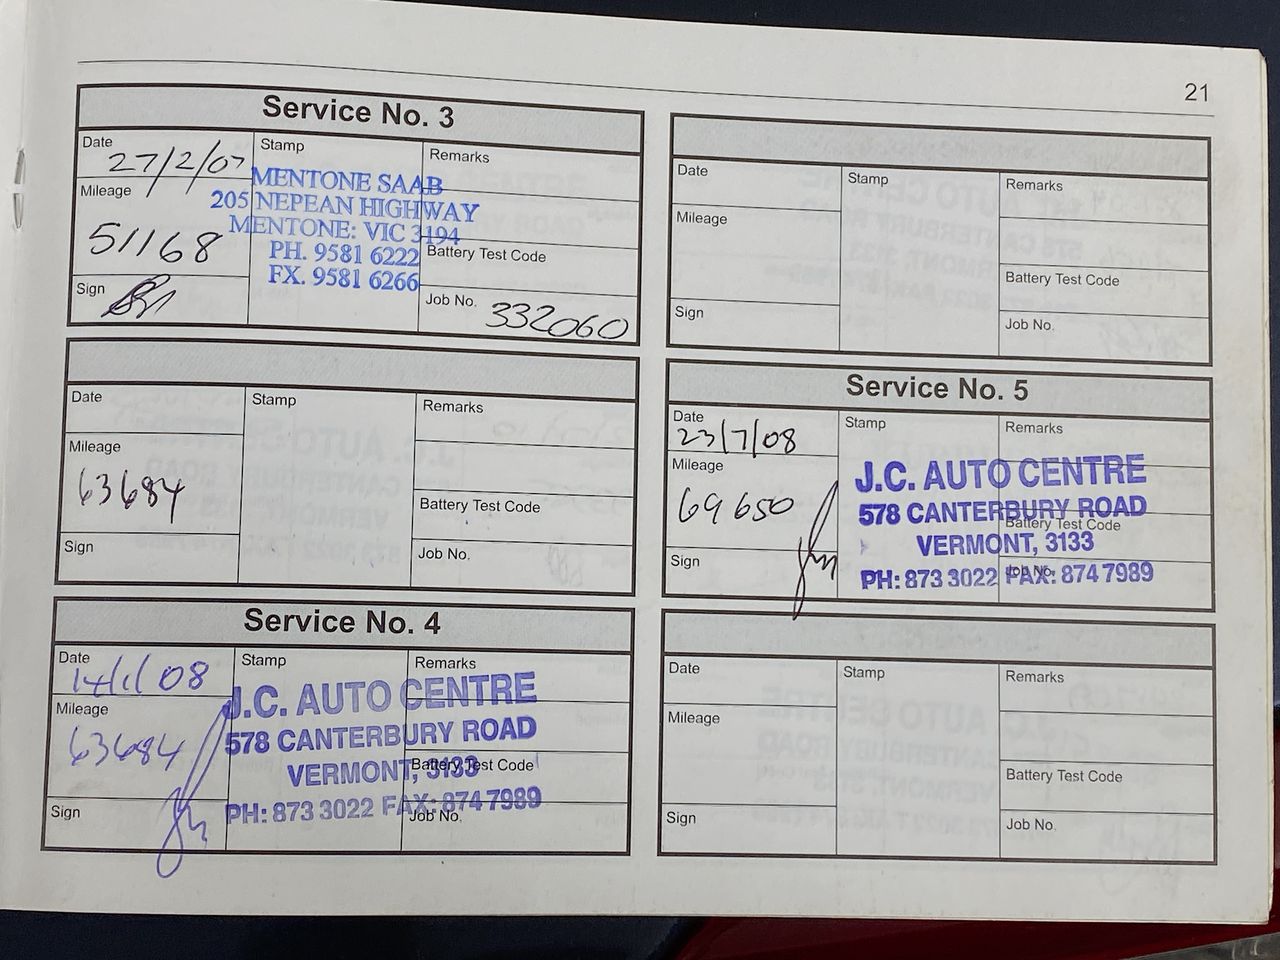 21
Service No. 3
Date
27/2/07
Mileage
51168
Sign
Stamp
MENTONE SAAB
205 NEPEAN HIGHWAY
MENTONE: VIC 3194
PH. 9581 6222
FX. 9581 6266
Remarks
Battery Test Code
Job No. 332060
Date
Mileage
63684
Sign
Stamp
Remarks
Battery Test Code
Job No.
Service No. 4
Date
14/1/08
Mileage
63684
Sign
Stamp
J.C. AUTO CENTRE
578 CANTERBURY ROAD
VERMONT, 3133
PH: 873 3022 FAX: 874 7989
Remarks
Battery Test Code
Job No.
Date
Mileage
Sign
Stamp
Remarks
Battery Test Code
Job No.
Service No. 5
Date
23/7/08
Mileage
69650
Sign
Stamp
J.C. AUTO CENTRE
578 CANTERBURY ROAD
VERMONT, 3133
PH: 873 3022 FAX: 874 7989
Remarks
Battery Test Code
Job No.
Date
Mileage
Sign
Stamp
Remarks
Battery Test Code
Job No.